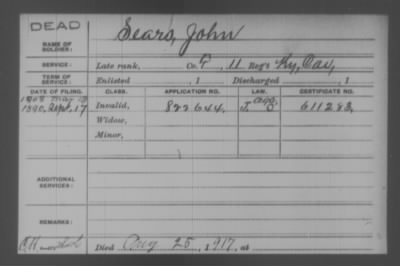 DEAD
NAME OF SOLDIER: Sears, John
SERVICE: Late rank, Co. 11 Reg't Ky. Cav,
TERM OF SERVICE: Enlisted , 1 Discharged , 1
DATE OF FILING. CLASS. APPLICATION NO. LAW. CERTIFICATE NO.
1890, Sept. 17 Invalid, 822644, 611283,
Widow,
Minor,
ADDITIONAL SERVICES:
REMARKS:
Died Aug 25, 1917, at